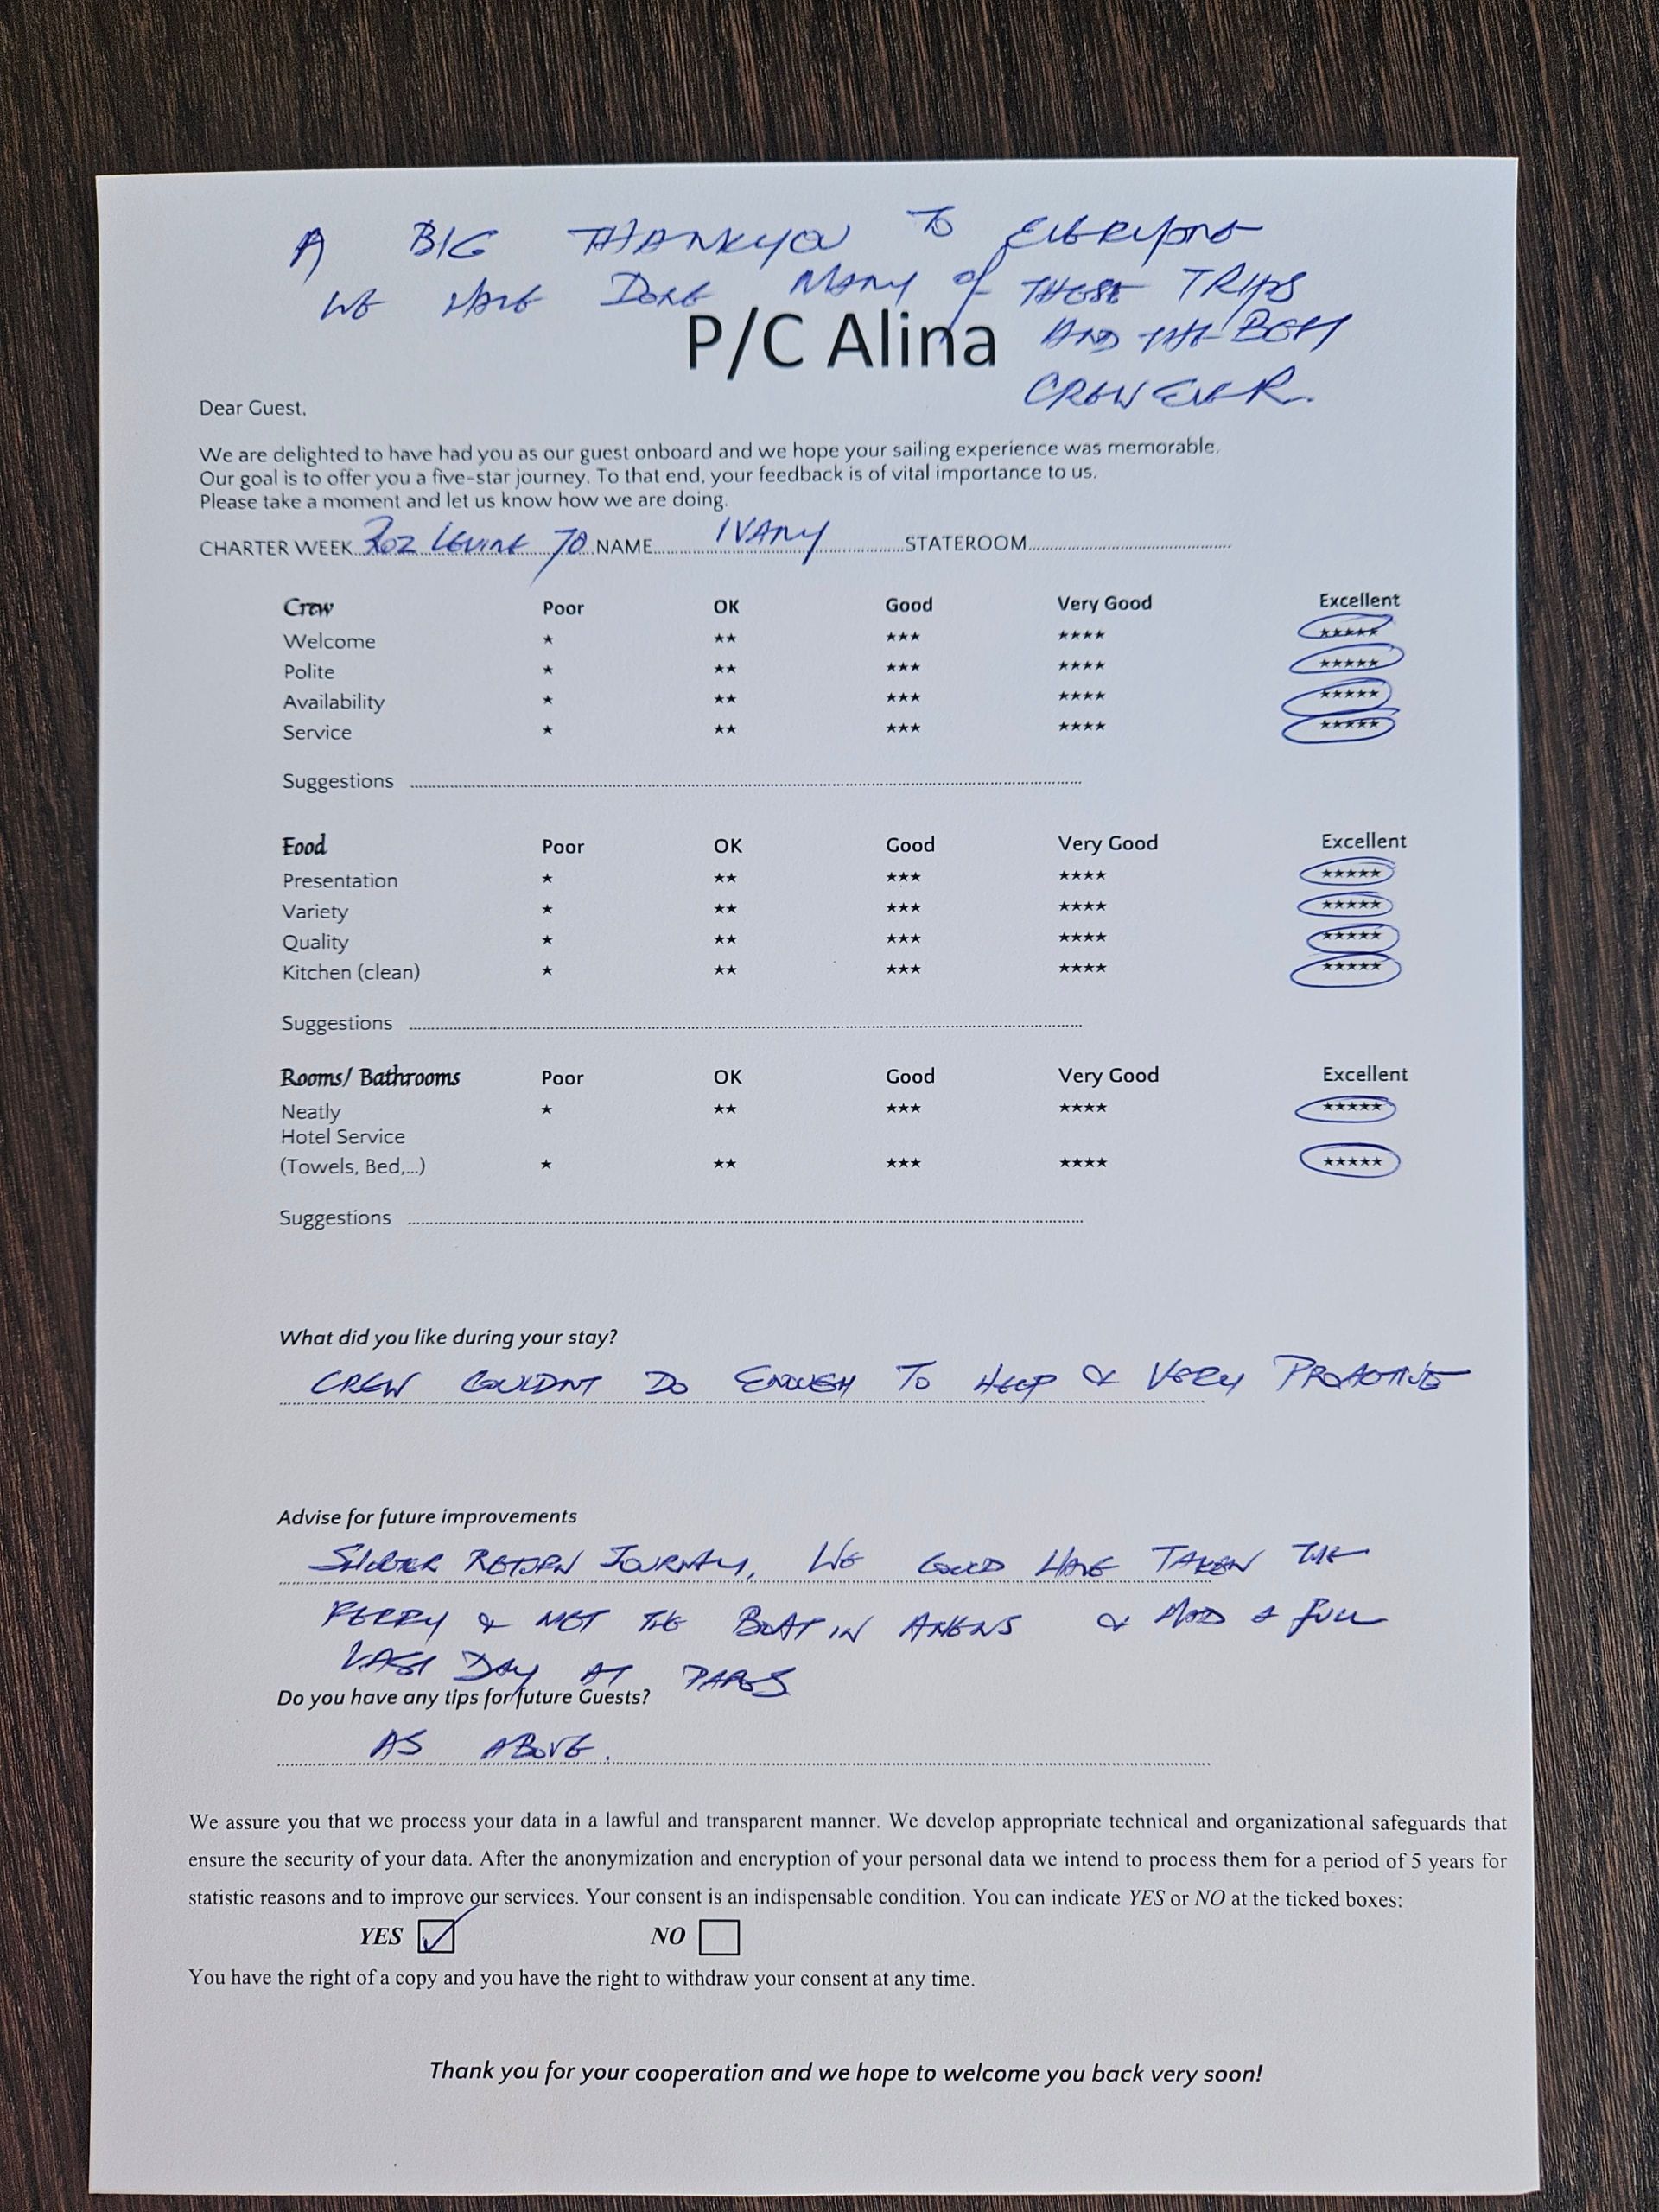 A BIG THANKYOU TO EVERYONE
WE HAVE DONE MANY of THESE TRIPS
AND THE BEST
CREW EVER.
P/C Alina
Dear Guest,
We are delighted to have had you as our guest onboard and we hope your sailing experience was memorable.
Our goal is to offer you a five-star journey. To that end, your feedback is of vital importance to us.
Please take a moment and let us know how we are doing.
CHARTER WEEK ROZ LEVINE 70 NAME IVANY STATEROOM
Crew Poor OK Good Very Good Excellent
Welcome ★ ★★ ★★★ ★★★★ ★★★★★
Polite ★ ★★ ★★★ ★★★★ ★★★★★
Availability ★ ★★ ★★★ ★★★★ ★★★★★
Service ★ ★★ ★★★ ★★★★ ★★★★★
Suggestions
Food Poor OK Good Very Good Excellent
Presentation ★ ★★ ★★★ ★★★★ ★★★★★
Variety ★ ★★ ★★★ ★★★★ ★★★★★
Quality ★ ★★ ★★★ ★★★★ ★★★★★
Kitchen (clean) ★ ★★ ★★★ ★★★★ ★★★★★
Suggestions
Rooms/ Bathrooms Poor OK Good Very Good Excellent
Neatly ★ ★★ ★★★ ★★★★ ★★★★★
Hotel Service
(Towels, Bed,...) ★ ★★ ★★★ ★★★★ ★★★★★
Suggestions
What did you like during your stay?
CREW COULDNT DO ENOUGH TO HELP & VERY PROACTIVE
Advise for future improvements
RETURN JOURNEY, WE COULD HAVE TAKEN THE
FERRY & MET THE BOAT IN ATHENS & HAD A FULL
LAST DAY AT PAROS
Do you have any tips for future Guests?
AS ABOVE.
We assure you that we process your data in a lawful and transparent manner. We develop appropriate technical and organizational safeguards that
ensure the security of your data. After the anonymization and encryption of your personal data we intend to process them for a period of 5 years for
statistic reasons and to improve our services. Your consent is an indispensable condition. You can indicate YES or NO at the ticked boxes:
YES NO
You have the right of a copy and you have the right to withdraw your consent at any time.
Thank you for your cooperation and we hope to welcome you back very soon!